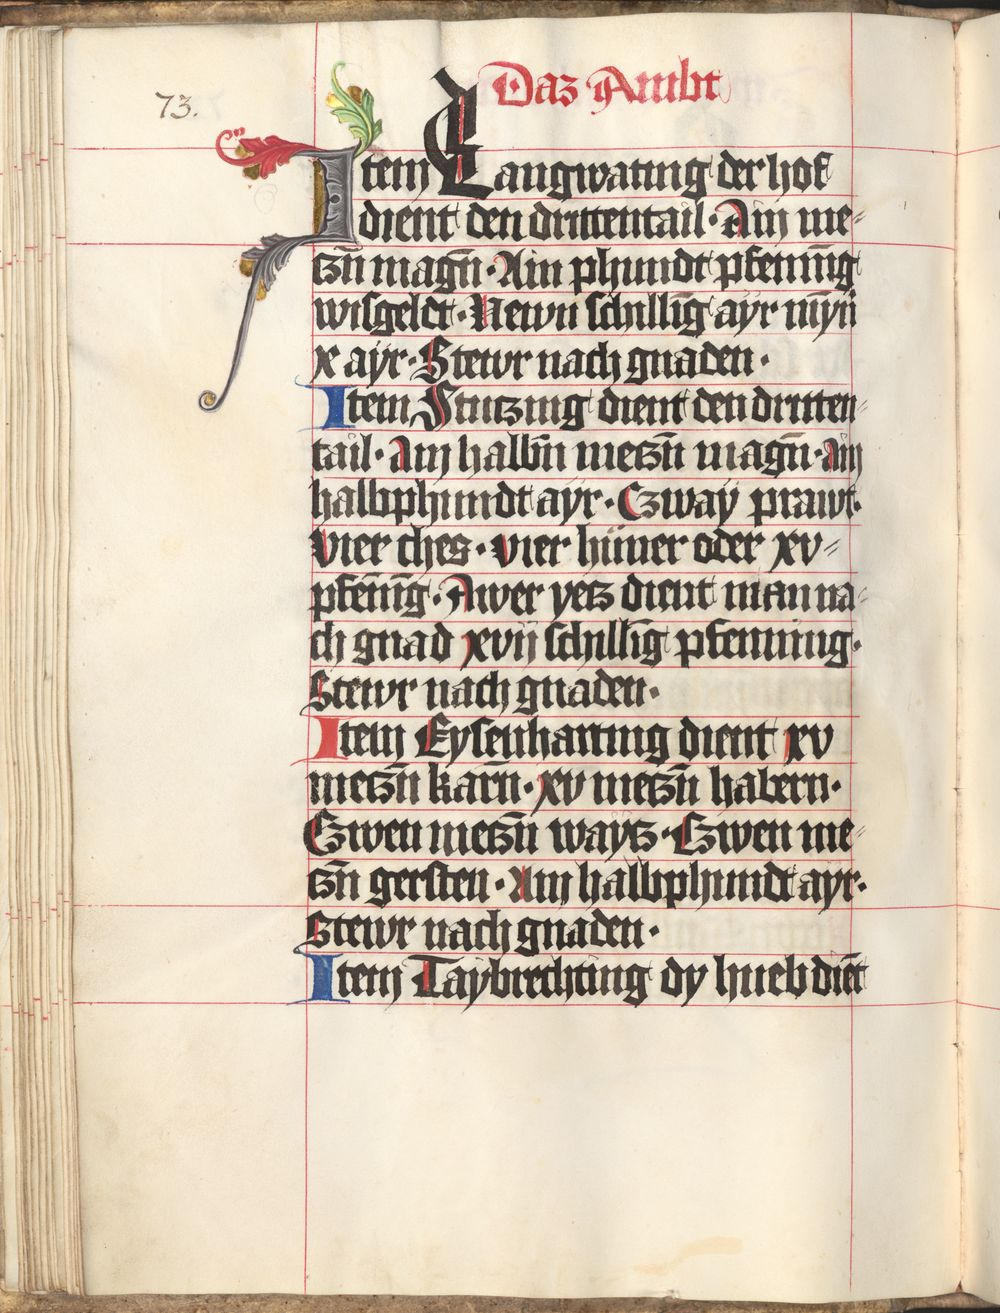 Daz Ambt
73.
Item Langwating der hof
dient den drittentail · Ain me-
tzn̄ magn̄ · Ain phundt pfennīg
wisgelt · Newn schillīg ayr mȳn
x ayr · Stewr nach gnaden ·
Item Stutzing dient den dritten-
tail · Ain halbn̄ metzn̄ magn̄ · ain
halbphundt ayr · Czway prawt ·
Vier ches · vier hüner oder xv-
pfēnīg · Awer yetz dient man na-
ch gnad xvij schillīg pfenning ·
Stewr nach gnaden ·
Item Eysenharting dient xv
metzn̄ karn̄ · xv metzn̄ habern ·
Czwen metzn̄ wayts · Czwen me-
tzn̄ gersten · Ain halbphundt ayr ·
Stewr nach gnaden ·
Item Taybrechting dy hueb diēt